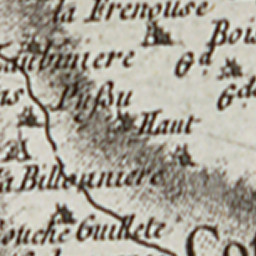 la Frenouse
Bois
aubiniere
Gd
as Pussu
Gde
Haut
la Billonniere
ouche Guillete
Co